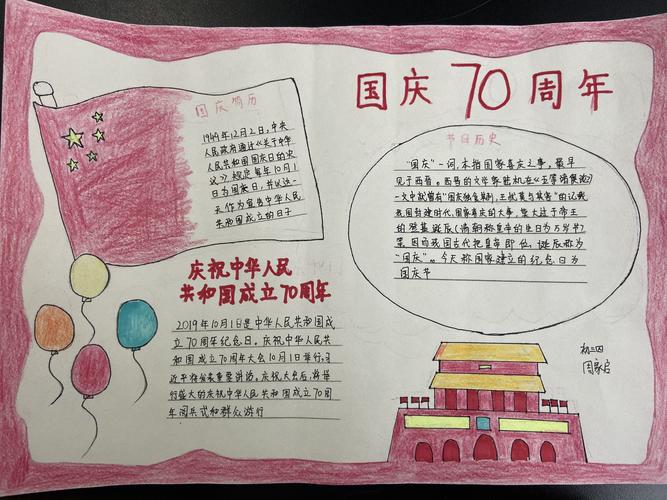 国庆70周年
国庆简历
1949年12月2日,中央
人民政府通过《关于中华
人民共和国国庆日的决
议》规定每年10月1
日为国庆日,并以这一
天作为宣告中华人民
共和国成立的日子
庆祝中华人民
共和国成立70周年
2019年10月1日是中华人民共和国成
立70周年纪念日。庆祝中华人民共
和国成立70周年大会10月1日举行,习
近平将发表重要讲话。庆祝大会后,将举
行盛大的庆祝中华人民共和国成立70周
年阅兵式和群众游行
节日历史
"国庆"一词,本指国家喜庆之事,最早
见于西晋。西晋的文学家陆机在《五等诸侯论》
一文中就曾有"国庆独飨其利,主忧莫与其害"的记载
我国封建时代,国家喜庆的大事,莫大过于帝王
的登基诞辰(清朝称皇帝的生日为万岁节)
因而我国古代把皇帝即位,诞辰称为
"国庆"。今天称国家建立的纪念日为
国庆节
初三四
周家